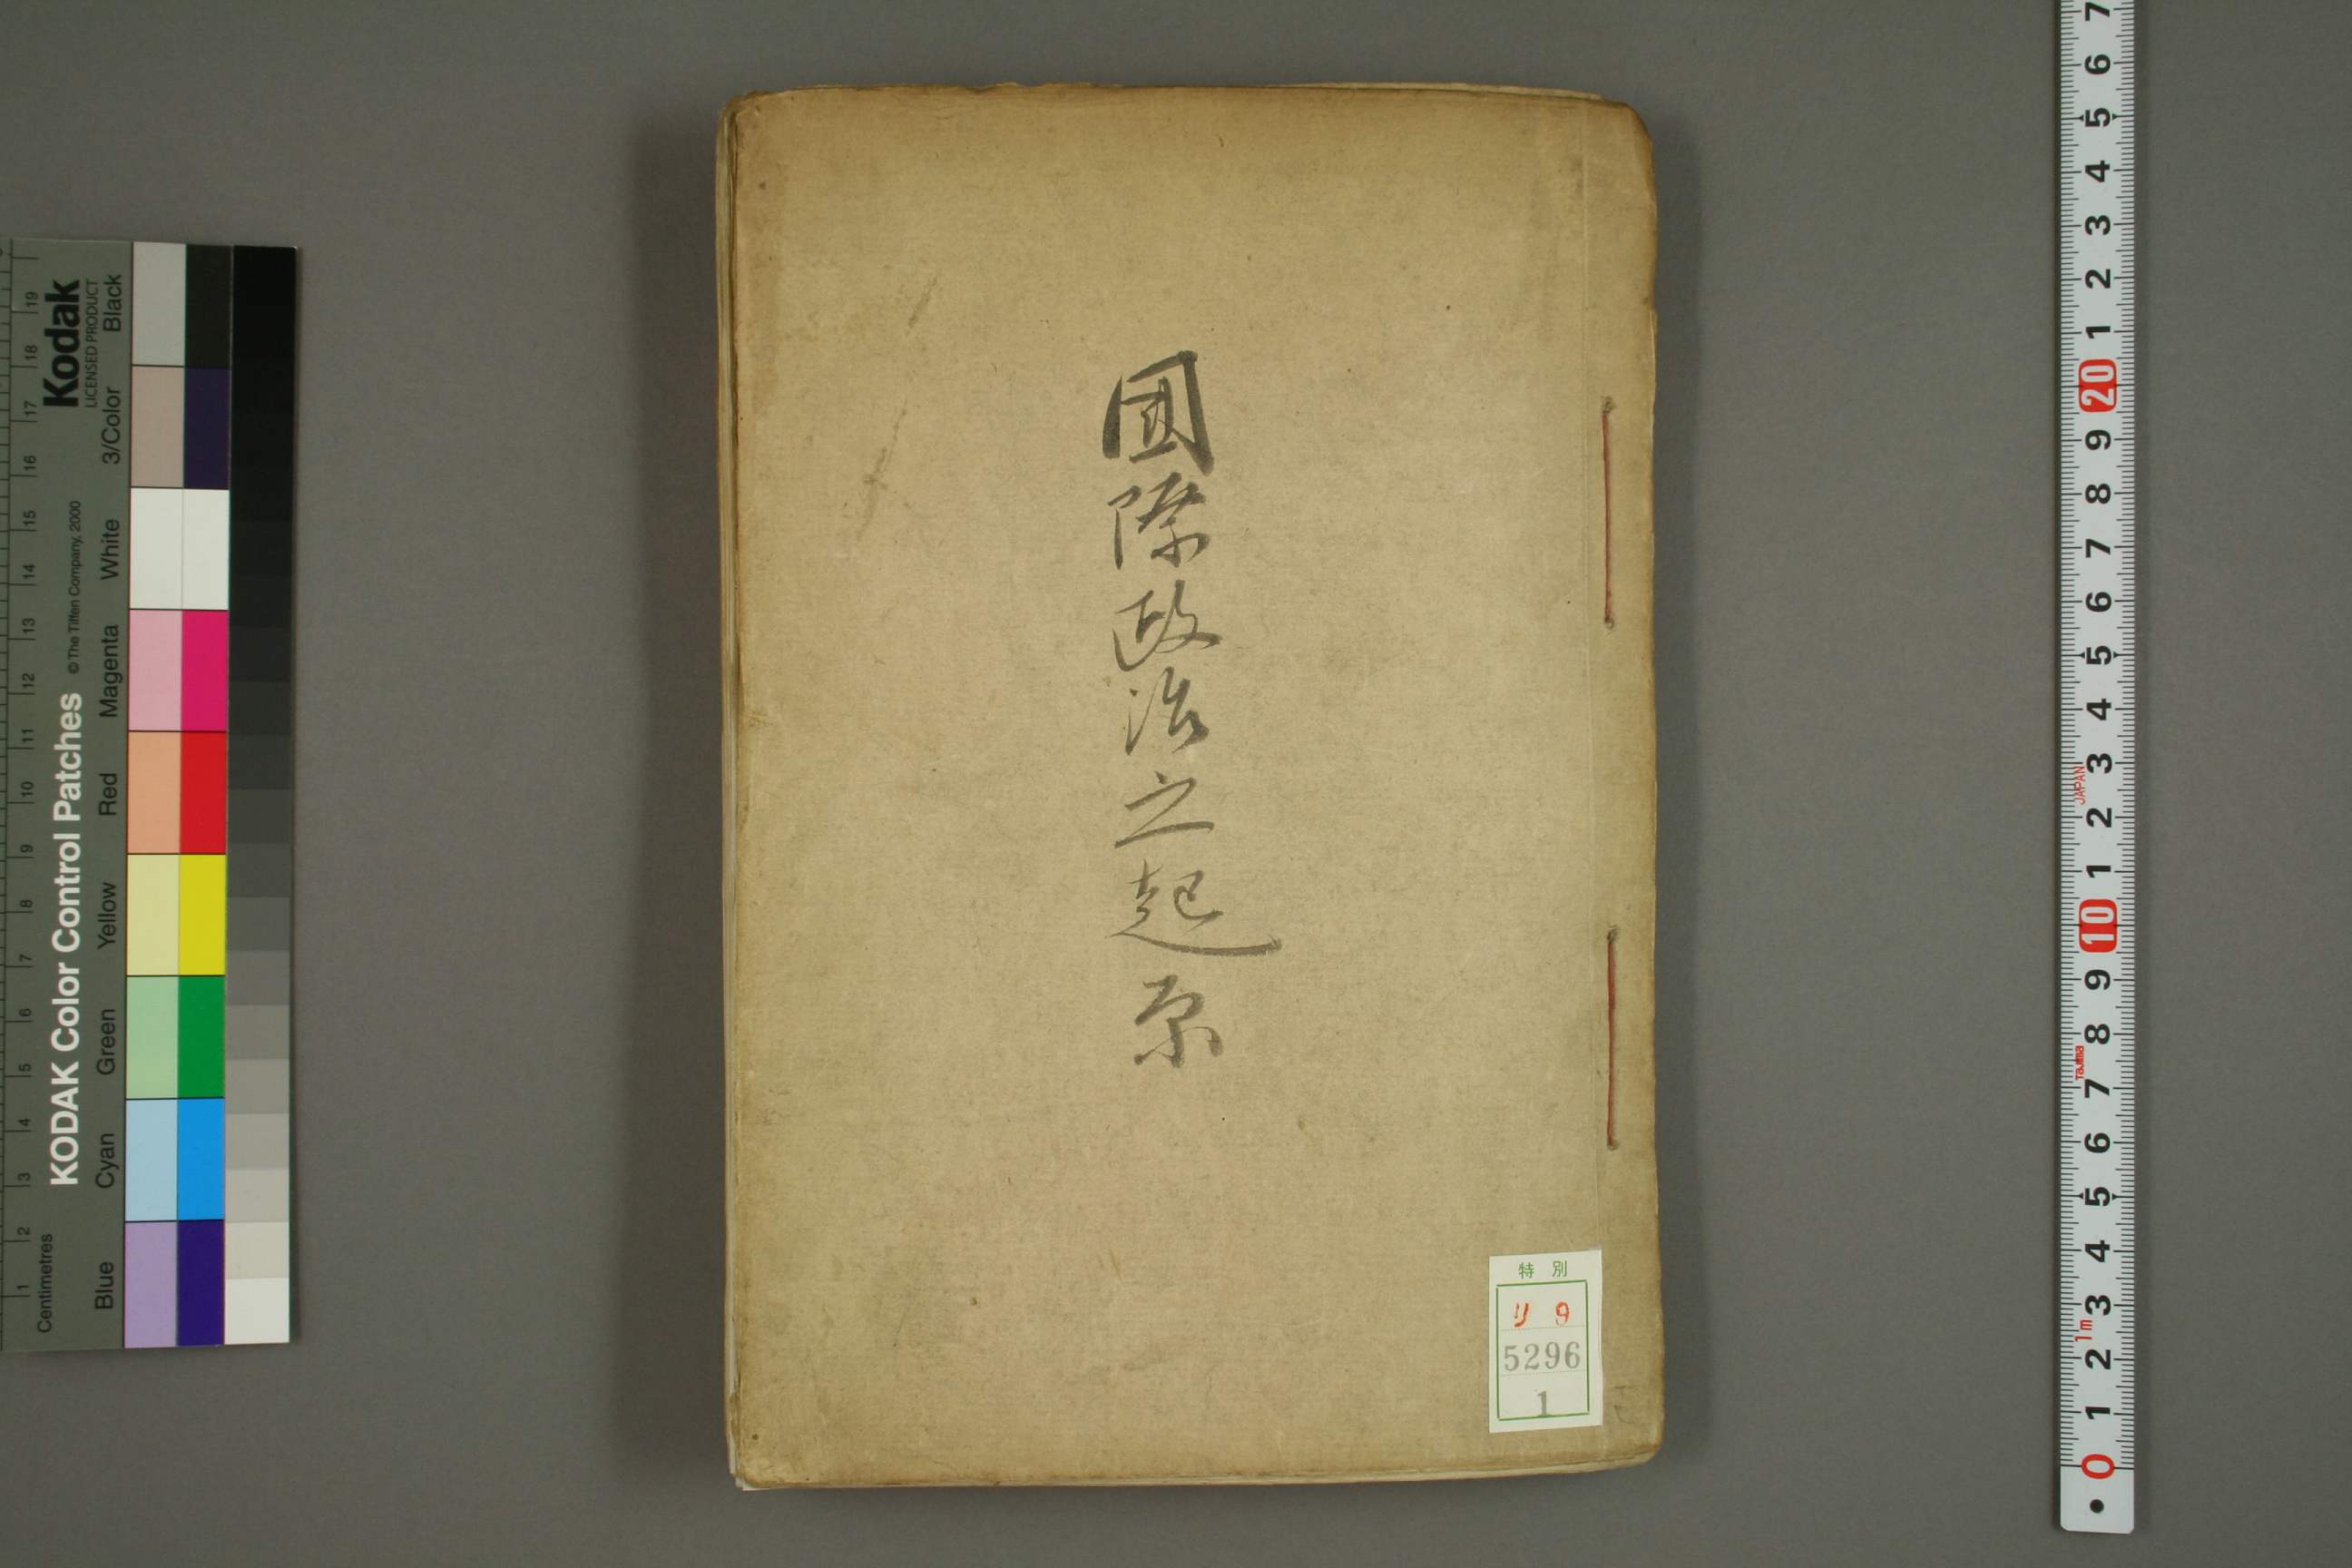 國際政治之起原
特別
リ9
5296
1
Kodak
LICENSED PRODUCT
KODAK Color Control Patches
© The Tiffen Company, 2000
Centimetres
Blue Cyan Green Yellow Red Magenta White 3/Color Black
1 2 3 4 5 6 7 8 9 10 11 12 13 14 15 16 17 18 19
0 1 2 3 4 5 6 7 8 9 10 1 2 3 4 5 6 7 8 9 20 1 2 3 4 5 6 7
1m
Tajima
JAPAN